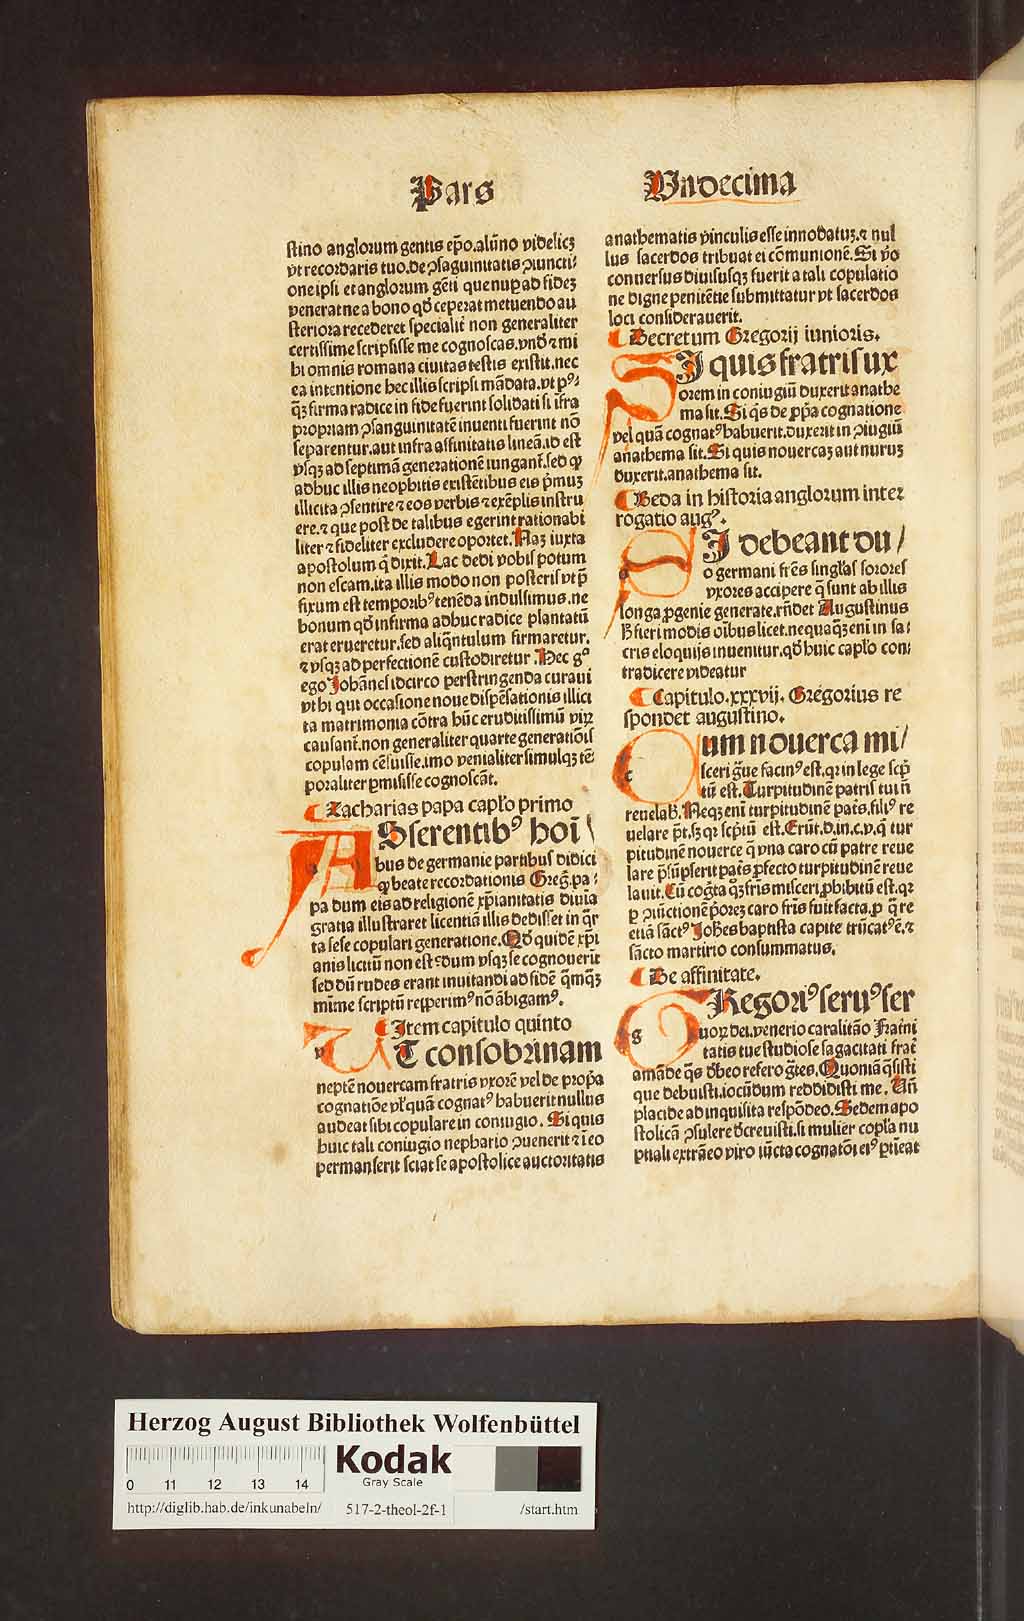 Pars
Vndecima
stino anglorum gentis ep̃o. alũno videlicꝫ
vt recordaris tuo. de ↄsaguinitatis ↄiuncti-
one ipsi et anglorum gẽti que nuꝑ ad fideꝫ
venerat ne a bono qđ ceperat metuendo au
steriora recederet specialiť non generaliter
certissime scripsisse me cognoscas. vnđ ⁊ mi
hi omnis romana ciuitas testis existit. nec
ea intentione hec illis scripsi mãdata. vt pꝰ-
q̃ꝫ firma radice in fide fuerint solidati si ifra
propriam ↄsanguinitatẽ inuenti fuerint nõ
separentur. aut infra affinitatis lineã. id est
vsqꝫ ad septimã generationẽ iungant̃. sed ꝙ
adhuc illis neophitis existẽtibus eis p̃muꝫ
illicita ↄsentire ⁊ eos verbis ⁊ exẽplis instru
ere. ⁊ que post de talibus egerint rationabi
liter ⁊ fideliter excludere oportet. Naꝫ iuxta
apostolum q̃ dixit. Lac dedi vobis potum
non escam. ita illis modo non posteris vt p̃
fixum est temporibꝰ tenẽda indulsimus. ne
bonum qđ infirma adhuc radice plantatũ
erat erueretur. sed aliq̃ntulum firmaretur.
⁊ vsqꝫ ad perfectionẽ custodiretur. Hec gͦ
ego Johãnes idcirco perstringenda curaui
vt hi qui occasione noue dispẽsationis illici
ta matrimonia cõtra hũc eruditissimũ viꝝ
causant̃. non generaliter quarte generatiõis
copulam cẽsuisse. imo venialiter simulqꝫ tẽ-
poraliter ꝑmisisse cognoscãt.
Zacharias papa cap̃lo primo
ASserentibꝰ hoĩ
bus de germanie partibus didici
ꝙ beate recordationis Greg̃. pa-
pa dum eis ad religionẽ xp̃ianitatis diuia
gratia illustraret licentiã illis dedisset in q̃r
ta sese copulari generatione. Qđ quidẽ xp̃i
anis licitũ non est dum vsqꝫ se cognouerĩt
sed dũ rudes erant inuitandi ad fidẽ q̃mqꝫ
mĩme scriptũ reꝑperimꝰ nõ ãbigamꝰ.
Item capitulo quinto
VT consobrinam
neptẽ nouercam fratris vxorẽ vel de prop̃a
cognatiõe vel quã cognatꝰ habuerit nullus
audeat sibi copulare in coniugio. Si quis
huic tali coniugio nephario ↄuenerit ⁊ ĩ eo
permanserit sciat se apostolice auctoritatis
anathematis vinculis esse innodatuꝫ. ⁊ nul
lus sacerdos tribuat ei cõmunionẽ. Si v̾o
conuersus diuisusqꝫ fuerit a tali copulatio
ne digne penitẽtie submittatur vt sacerdos
loci considerauerit.
Decretum Gregorij iunioris.
SI quis fratris ux
orem in coniugiũ duxerit anathe
ma sit. Si q̃s de ꝓp̃a cognatione
vel quã cognatꝰ habuerit. duxerit in ↄiugiũ
anathema sit. Si quis nouercaꝫ aut nuruꝫ
duxerit. anathema sit.
Beda in historia anglorum inter
rogatio augꝰ.
SI debeant du/
o germani fr̃es singl̃as sorores
vxores accipere q̃ sunt ab illis
longa ꝓgenie generate. rñdet Augustinus
H̾ fieri modis oĩbus licet. nequaq̃ꝫ eni in sa-
cris eloquijs inuenitur. qđ huic cap̃lo con-
tradicere videatur
Capitulo. xxxvij. Gregorius re
spondet augustino.
CUm nouerca mi/
sceri g̃ue facinꝰ est. qꝛ in lege sc̃p
tũ est. Turpitudinẽ patris tui ñ
reuelab̾. Neqꝫ eni turpitudinẽ pat̾s. filiꝰ re
uelare p̃t. sꝫ qꝛ sc̃ptũ est. Erũt. d. in. c. v. q̃ tur
pitudinẽ nouerce q̃ vna caro cũ patre reue
lare p̃sũpserit pat̾s ꝓfecto turpitudinẽ reue
lauit. Cũ cog̃ta qꝫ fr̃is misceri ꝓhibitũ est. qꝛ
ꝑ ↄiũctionẽ p̾oreꝫ caro fr̃is fuit facta. ꝓ q̃ re
etiã sanctꝰ Joh̾es baptista capite trũcatꝰ ẽ. ⁊
sãcto martirio consummatus.
De affinitate.
GRegoriꝰ seruꝰ ser
uoꝝ dei. venerio caralitão Fratñi
tatis tue studiose sagacitati frat̃
amãde q̃s đbeo refero g̃tes. Quoniã q̃sisti
que debuisti. iocũdum reddidisti me. Uñ
placide ad inquisita respõdeo. Sedem apo
stolicã ↄsulere đcreuisti. si mulier copl̃a nu
ptiali extrãeo viro iũcta cognatõi eiꝰ ꝑtieat
Herzog August Bibliothek Wolfenbüttel
0 11 12 13 14
Kodak
Gray Scale
http://diglib.hab.de/inkunabeln/ 517-2-theol-2f-1 /start.htm